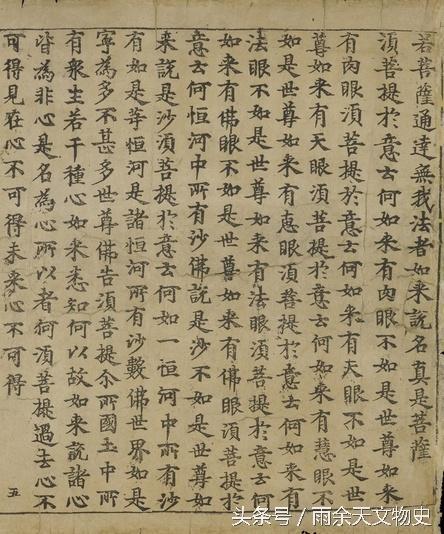 若菩薩通達無我法者如来說名真是菩薩
湏菩提於意云何如来有肉眼不如是世尊如来
有肉眼湏菩提於意云何如来有天眼不如是世
尊如来有天眼湏菩提於意云何如来有慧眼不
如是世尊如来有恵眼湏菩提於意云何如来有
法眼不如是世尊如来有法眼湏菩提於意云何
如来有佛眼不如是世尊如来有佛眼湏菩提於
意云何恒河中所有沙佛說是沙不如是世尊如
来說是沙湏菩提於意云何如一恒河中所有沙
有如是等恒河是諸恒河所有沙數佛世界如是
寧為多不甚多世尊佛告湏菩提尒所國土中所
有衆生若干種心如来悉知何以故如来說諸心
皆為非心是名為心所以者何湏菩提過去心不
可得見在心不可得未来心不可得
五
头条号／雨余天文物史